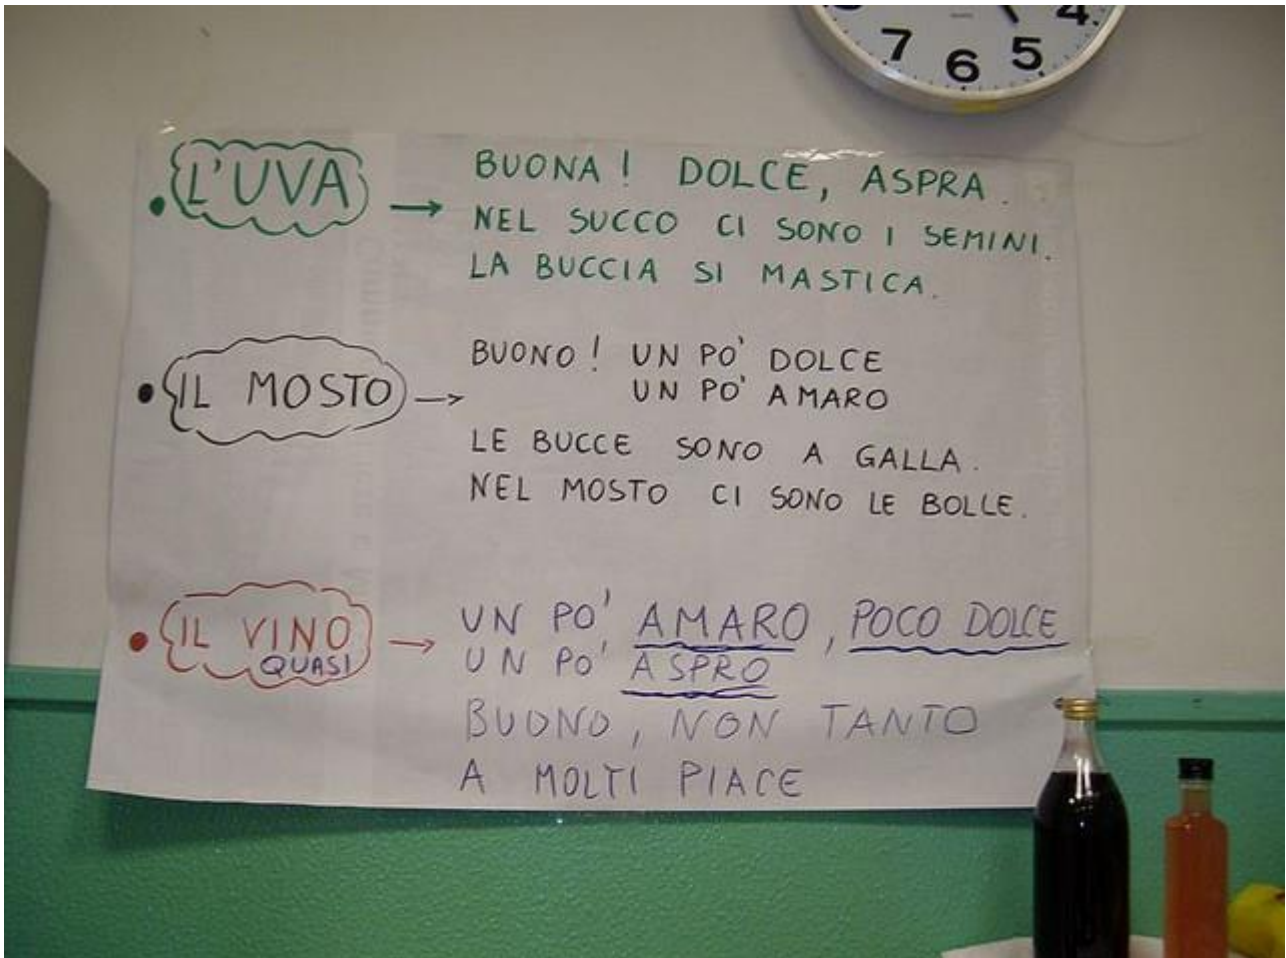 7 6 5 4
L'UVA → BUONA! DOLCE, ASPRA.
NEL SUCCO CI SONO I SEMINI.
LA BUCCIA SI MASTICA.
IL MOSTO → BUONO! UN PO' DOLCE
UN PO' AMARO
LE BUCCE SONO A GALLA.
NEL MOSTO CI SONO LE BOLLE.
IL VINO → UN PO' AMARO, POCO DOLCE
QUASI UN PO' ASPRO
BUONO, NON TANTO
A MOLTI PIACE